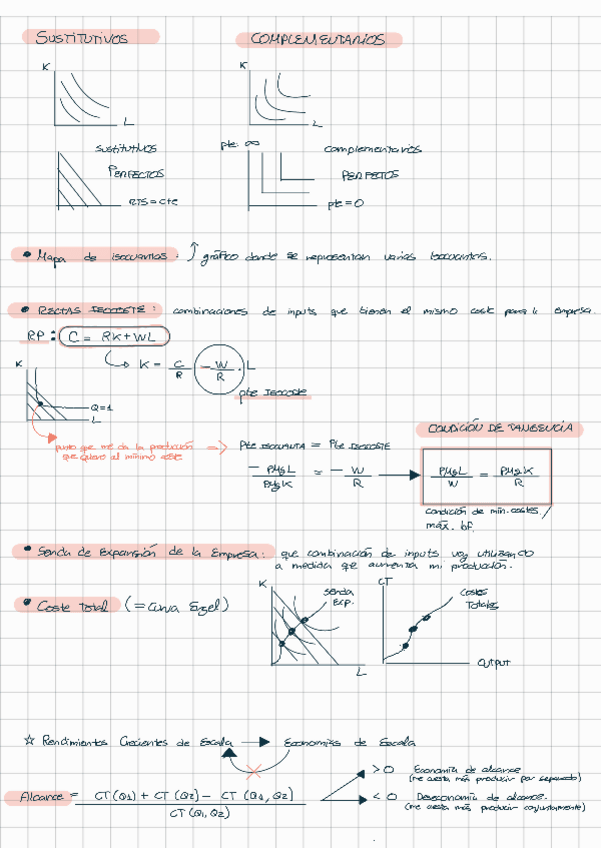 SUSTITUTIVOS
COMPLEMENTARIOS
K
K
L
L
sustitutivos
PERFECTOS
RTS = cte
pte: ∞
complementarios
PERFECTOS
pte = 0
• Mapa de isocuantas: gráfico donde se representan varias isocuantas.
• RECTAS ISOCOSTE: combinaciones de inputs que tienen el mismo coste para la empresa.
RP: C = RK + WL
K = C/R - W/R · L
pte ISOCOSTE
K
Q=1
punto que me da la producción
que quiero al mínimo coste
=> Pte ISOCUANTA = Pte ISOCOSTE
- PMgL/PMgK = - W/R
CONDICIÓN DE TANGENCIA
PMgL/W = PMgK/R
condición de mín. costes /
máx. bf.
• Senda de Expansión de la Empresa: que combinación de inputs voy utilizando
a medida que aumenta mi producción.
• Coste Total (= Curva Engel)
K
senda
exp.
L
CT
Costes
Totales
OUTPUT
☆ Rendimientos Crecientes de Escala → Economías de Escala
Alcance = CT(Q1) + CT(Q2) - CT(Q1, Q2) / CT(Q1, Q2)
> 0 Economía de alcance
(me cuesta más producir por separado)
< 0 Deseconomía de alcance.
(me cuesta más producir conjuntamente)